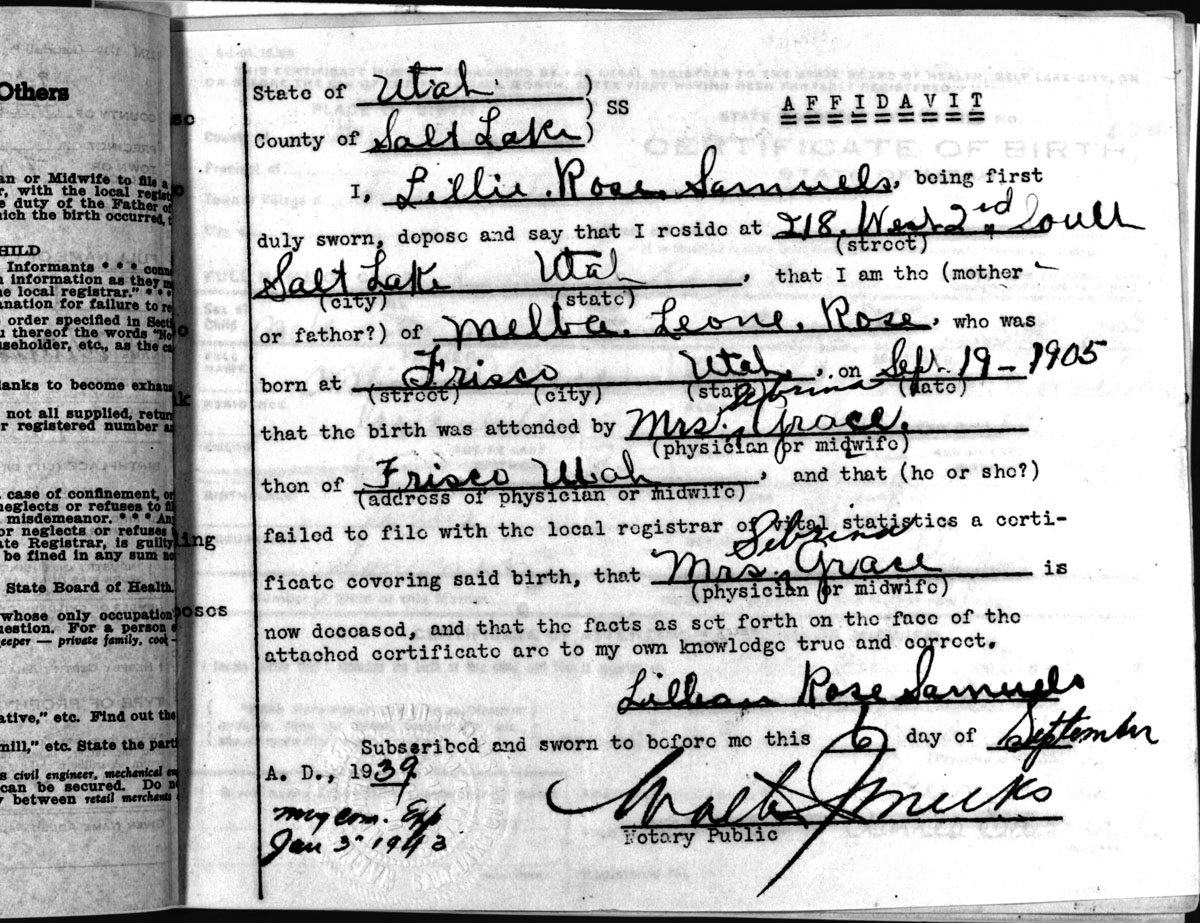 Others
an or Midwife to file a
r, with the local regist
e duty of the Father of
hich the birth occurred, t
HILD
Informants * * * conn
n information as they m
he local registrar." * * *
anation for failure to re
order specified in Secti
u thereof the words "No
useholder, etc., as the ca
lanks to become exhaus
not all supplied, return
r registered number a
case of confinement, or
neglects or refuses to fi
misdemeanor. * * * An
or neglects or refuses
ate Registrar, is guilty
be fined in any sum no
State Board of Health.
whose only occupation
uestion. For a person
keeper — private family, cook
ative," etc. Find out the
mill," etc. State the parti
s civil engineer, mechanical en
can be secured. Do n
y between retail merchants
State of Utah )
) SS
County of Salt Lake )
AFFIDAVIT
I, Lillie Rose Samuels, being first
duly sworn, depose and say that I reside at 218 West 2nd South
(street)
Salt Lake Utah, that I am the (mother
(city) (state)
or father?) of Melba Leone Rose, who was
born at Frisco Utah, on Sept. 19 - 1905
(street) (city) (state) (date)
Sebrina
that the birth was attended by Mrs. Grace.
(physician or midwife)
then of Frisco Utah, and that (he or she?)
(address of physician or midwife)
failed to file with the local registrar of vital statistics a certi-
Sebrina
ficate covering said birth, that Mrs. Grace is
(physician or midwife)
now deceased, and that the facts as set forth on the face of the
attached certificate are to my own knowledge true and correct.
Lillian Rose Samuels
Subscribed and sworn to before me this 6 day of September
A. D., 1939
Notary Public
my com. Exp
Jan 3" 1943